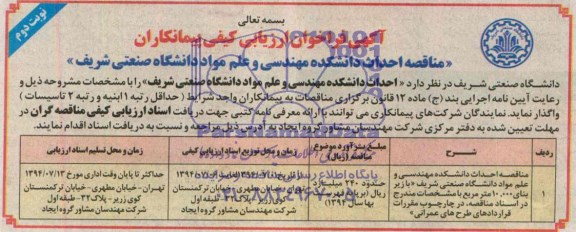 بسمه تعالی
نوبت دوم
آگهی فراخوان ارزیابی کیفی پیمانکاران
«مناقصه احداث دانشکده مهندسی و علم مواد دانشگاه صنعتی شریف»
دانشگاه صنعتی شریف در نظر دارد «احداث دانشکده مهندسی و علم مواد دانشگاه صنعتی شریف» را با مشخصات مشروحه ذیل و
رعایت آیین نامه اجرایی بند (ج) ماده ۱۲ قانون برگزاری مناقصات به پیمانکاران واجد شرایط (حداقل رتبه ۱ ابنیه و رتبه ۲ تاسیسات)
واگذار نماید. نمایندگان شرکت‌های پیمانکاری می توانند با ارائه معرفی نامه کتبی جهت دریافت اسناد ارزیابی کیفی مناقصه گران در
مهلت تعیین شده به دفتر مرکزی شرکت مهندسان مشاور گروه ایجاد به آدرس ذیل مراجعه و نسبت به دریافت اسناد اقدام نمایند.
ردیف
شرح
مبلغ برآورد موضوع مناقصه (ریال)
زمان و محل توزیع اسناد ارزیابی کیفی
زمان و محل تسلیم اسناد ارزیابی
۱
مناقصه احداث دانشکده مهندسی و
علم مواد دانشگاه صنعتی شریف «با زیر
بنای ۱۰,۰۰۰ متر مربع با مشخصات مندرج
در اسناد مناقصه، در چارچوب مقررات
قراردادهای طرح های عمرانی»
حدود ۲۴۰ میلیارد
ریال
بها سال ۱۳۹۴)
تهران- خیابان مطهری- خیابان ترکمنستان
کوی زریر- پلاک ۳۲- طبقه اول
شرکت مهندسان مشاور گروه ایجاد
حداکثر تا پایان وقت اداری مورخ ۱۳۹۴/۰۷/۱۳
تهران- خیابان مطهری- خیابان ترکمنستان
کوی زریر- پلاک ۳۲- طبقه اول
شرکت مهندسان مشاور گروه ایجاد